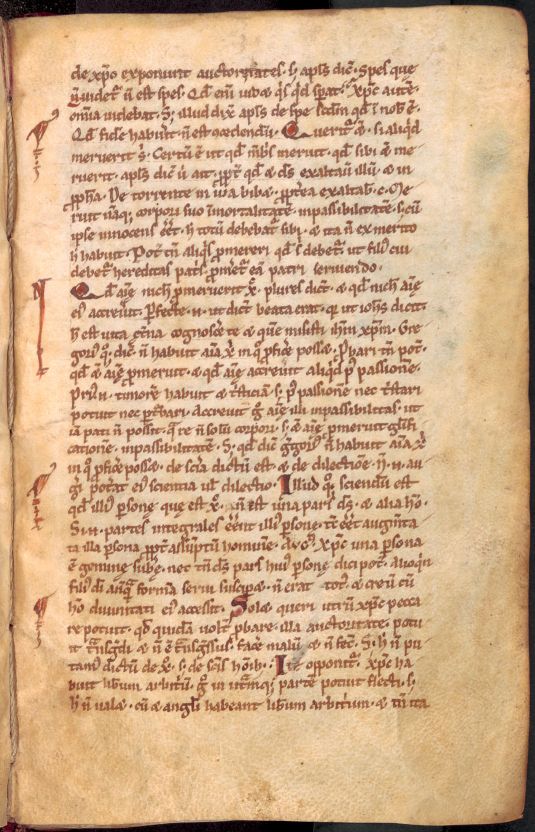 de xp̄o exponunt auctoritates. h̄ apl̃s dic̃. Spes que
ñ uidet̃ ñ est spes. Qd̃ eni uideᷓ q̾s qd̃ sperat. xp̃c autē
omīa uidebat. S; illud dix̃ apl̃s de spe scd̃m qd̃ ĩ nob̃ ẽ.
Qd̃ fidẽ habuit ñ est credendũ. Querit̃ ẽ. si aliq̾d
meruerit s̃. Certũ ẽ ut qd̃ mẽb̃s meruit. qd̃ sibi ẽ me-
ruerit. apl̃s dic̃ ũ ait. ppt̃ qd̃ & d̃s exaltauit illũ. & in
ppħa. De torrente in uia bibet. ppt̃ea exaltab̃. c̃. Me-
ruit naq; corpori suo ĩmortalitatẽ. inpassibilitatẽ. s; cũ
ipse innocens eẽt. h̄ totũ debebat̃ sibi. & ita ñ ex merito
h̄ habuit. Pot̃ tñ aliq̾s pmereri qd̃ s̃ debet̃. ut fili᷒ cui
debet̃ hereditas pat̃s. pmet̃ eã patri seruiendo.
Qd̃ aĩe nich̃ pmeruerit x̃. plures dic̃t. & qd̃ nich̃ aĩe
ei᷒ accreuit. Pfecte .n. ut dic̃t beata erat. q̾ ut ioħs dicit.
h̄ est uita et̃na cognosc̃e te & quẽ misisti ih̃m xp̃m. Gre-
gori᷒ q; dic̃. ñ habuit aĩa x̃ in q̊ pfic̃e posset. Pbari tñ pot̃.
qd̃ & aĩe pmeruit. & qd̃ aĩe accreuit aliq̾d p᷒ passionẽ.
Pri᷒ .n. timorẽ habuit & t̃sticiã. s; p᷒ passionẽ nec t̃stari
potuit nec pt̃bari. Accreuit g̊ aĩe illi inpassibilitas. ut
iã pati ñ possit. q̾re ñ solũ corpori. s; & aĩe pmeruit gl̃ifi-
cationẽ. inpassibilitatẽ. S; qd̃ dic̃ g̃gori᷒ ñ habuit aĩa x̃
in q̊ pfic̃e posset. de sc̃ia dictũ est & de dilectiõe. ñ .n. au-
g̃i pot̃at ei᷒ scientia ut̃ dilectio. Illud q; sciendũ est
qd̃ illi᷒ psone que est x̃. ñ est una pars d̃s. & alia hõ.
Si .n. partes integrales eẽnt illi᷒ psone. tc̃ eẽt augmta-
ta illa psona ppt̃ assũptũ hominẽ. xp̃c una psona
ẽ geminẽ sub̃e. nec tñ d̃s pars hui᷒ psone dici pot̃. alioq̾n
fili᷒ d̃i anq̾ formã serui suscipet. ñ erat tot᷒. & creũ cũ
hõ diuinitati ei᷒ accessit. Solet queri utrũ xp̃c pecca-
re potuit. qd̃ quidã uol̃t pbare. illa auctoritate. potu-
it t̃nsg̃di & ñ ẽ t̃nsg̃ssus. fac̃e malũ & ñ fec̃. S; h̄ ñ pu-
tant dictũ de x̃. s; de sc̃is hõib᷒. Itẽ opponit̃. xp̃c ha-
buit lib̃um arbit̃ũ. g̊ in ut̃mq; partẽ potuit flecti. s;
h̄ ñ ualet. cũ & angl̃i habeant lib̃um arbit̃ium. & tñ ita